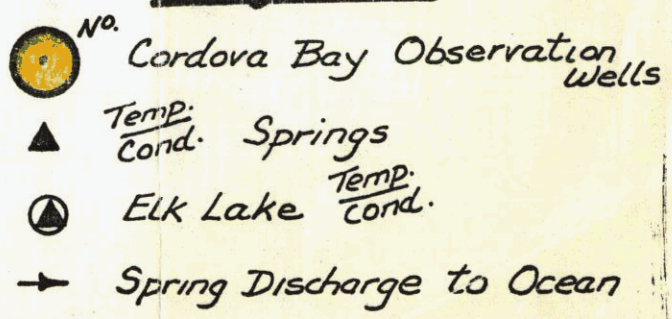 No. Cordova Bay Observation
Wells
Temp.
Cond. Springs
Elk Lake Temp.
Cond.
Spring Discharge to Ocean